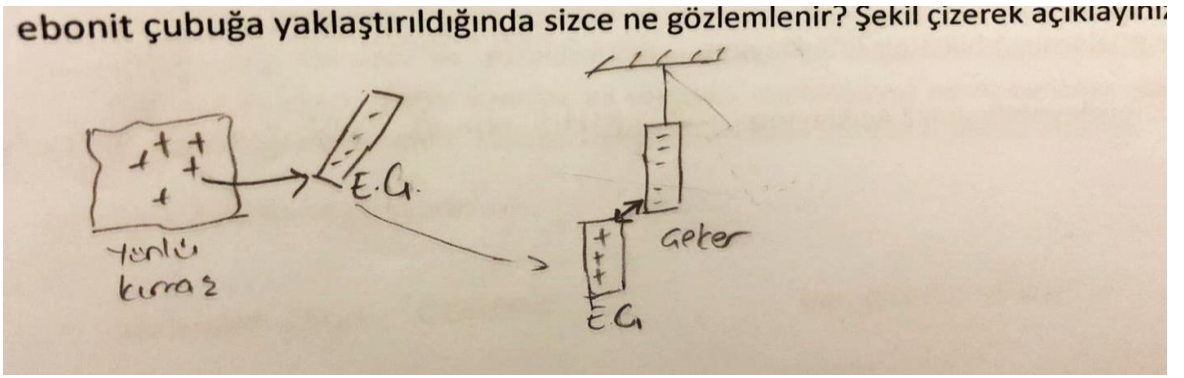 ebonit çubuğa yaklaştırıldığında sizce ne gözlemlenir? Şekil çizerek açıklayınız
E.G.
Yünlü
kumaş
Geker
E.G